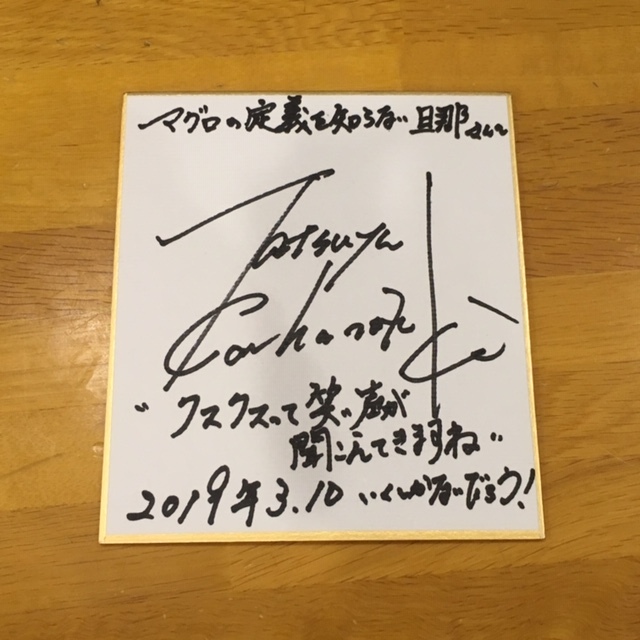 マグロの定義を知らない旦那さんへ
Tatsuya
"クスクスって笑い声が
聞こえてきますね"
2019年3.10 いくしかないだろう!